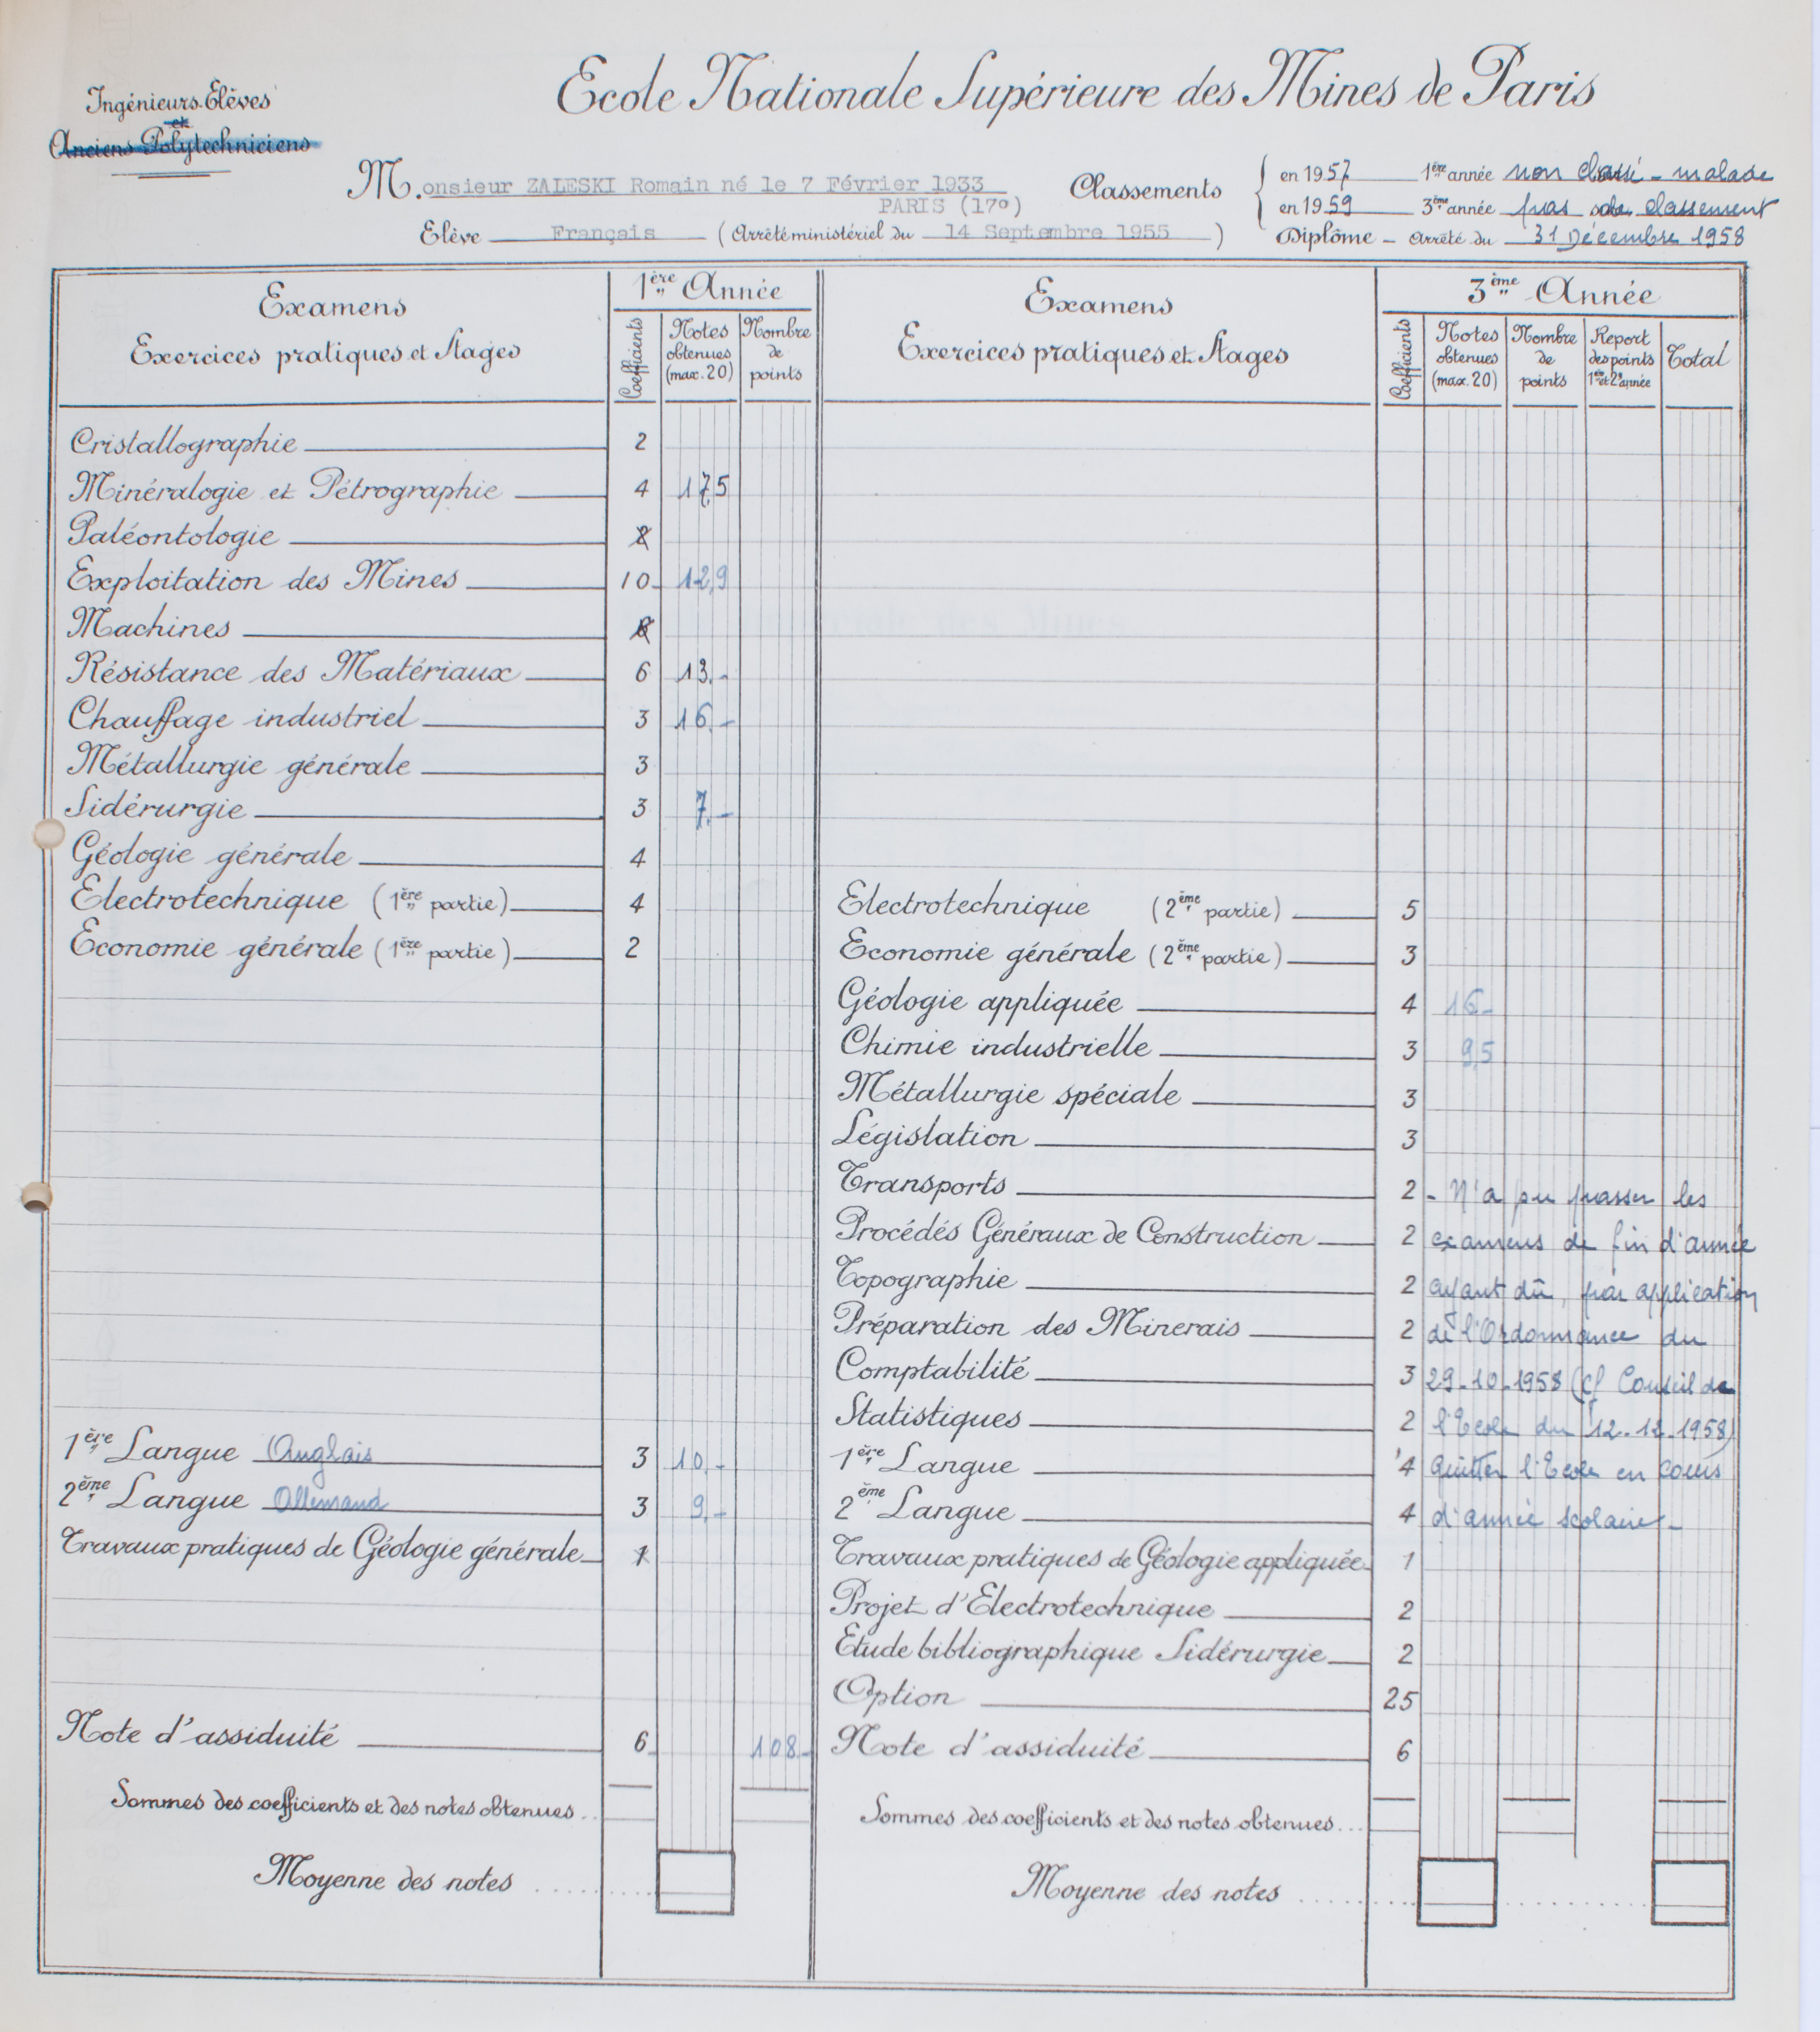 Ecole Nationale Supérieure des Mines de Paris
Ingénieurs-Elèves
et
Anciens Polytechniciens
M.onsieur ZALESKI Romain né le 7 Février 1933
PARIS (17º)
Elève Français (Arrêté ministériel du 14 Septembre 1955)
Classements
en 1957 1ère année non classé - malade
en 1959 3ème année pas de classement
Diplôme - Arrêté du 31 Décembre 1958
Examens
Exercices pratiques et Stages
1ère Année
Coefficients
Notes obtenues (max. 20)
Nombre de points
Cristallographie 2
Minéralogie et Pétrographie 4 17,5
Paléontologie 2
Exploitation des Mines 10 12,9
Machines
Résistance des Matériaux 6 13.-
Chauffage industriel 3 16.-
Métallurgie générale 3
Sidérurgie 3 7.-
Géologie générale 4
Electrotechnique (1ère partie) 4
Economie générale (1ère partie) 2
1ère Langue Anglais 3 10.-
2ème Langue Allemand 3 9.-
Travaux pratiques de Géologie générale 1
Note d'assiduité 6 108-
Sommes des coefficients et des notes obtenues..
Moyenne des notes
Examens
Exercices pratiques et Stages
3ème Année
Coefficients
Notes obtenues (max. 20)
Nombre de points
Report des points 1ère et 2e année
Total
Electrotechnique (2ème partie) 5
Economie générale (2ème partie) 3
Géologie appliquée 4 16-
Chimie industrielle 3 9,5
Métallurgie spéciale 3
Législation 3
Transports 2 - N'a pu passer les
Procédés Généraux de Construction 2 examens de fin d'année
Topographie 2 ayant dû, par application
Préparation des Minerais 2 de l'Ordonnance du
Comptabilité 3 29-10-1958 (cf Conseil de
Statistiques 2 l'Ecole du 12-12-1958)
1ère Langue 4 quitter l'Ecole en cours
2ème Langue 4 d'année scolaire-
Travaux pratiques de Géologie appliquée 1
Projet d'Electrotechnique 2
Etude bibliographique Sidérurgie 2
Option 25
Note d'assiduité 6
Sommes des coefficients et des notes obtenues...
Moyenne des notes